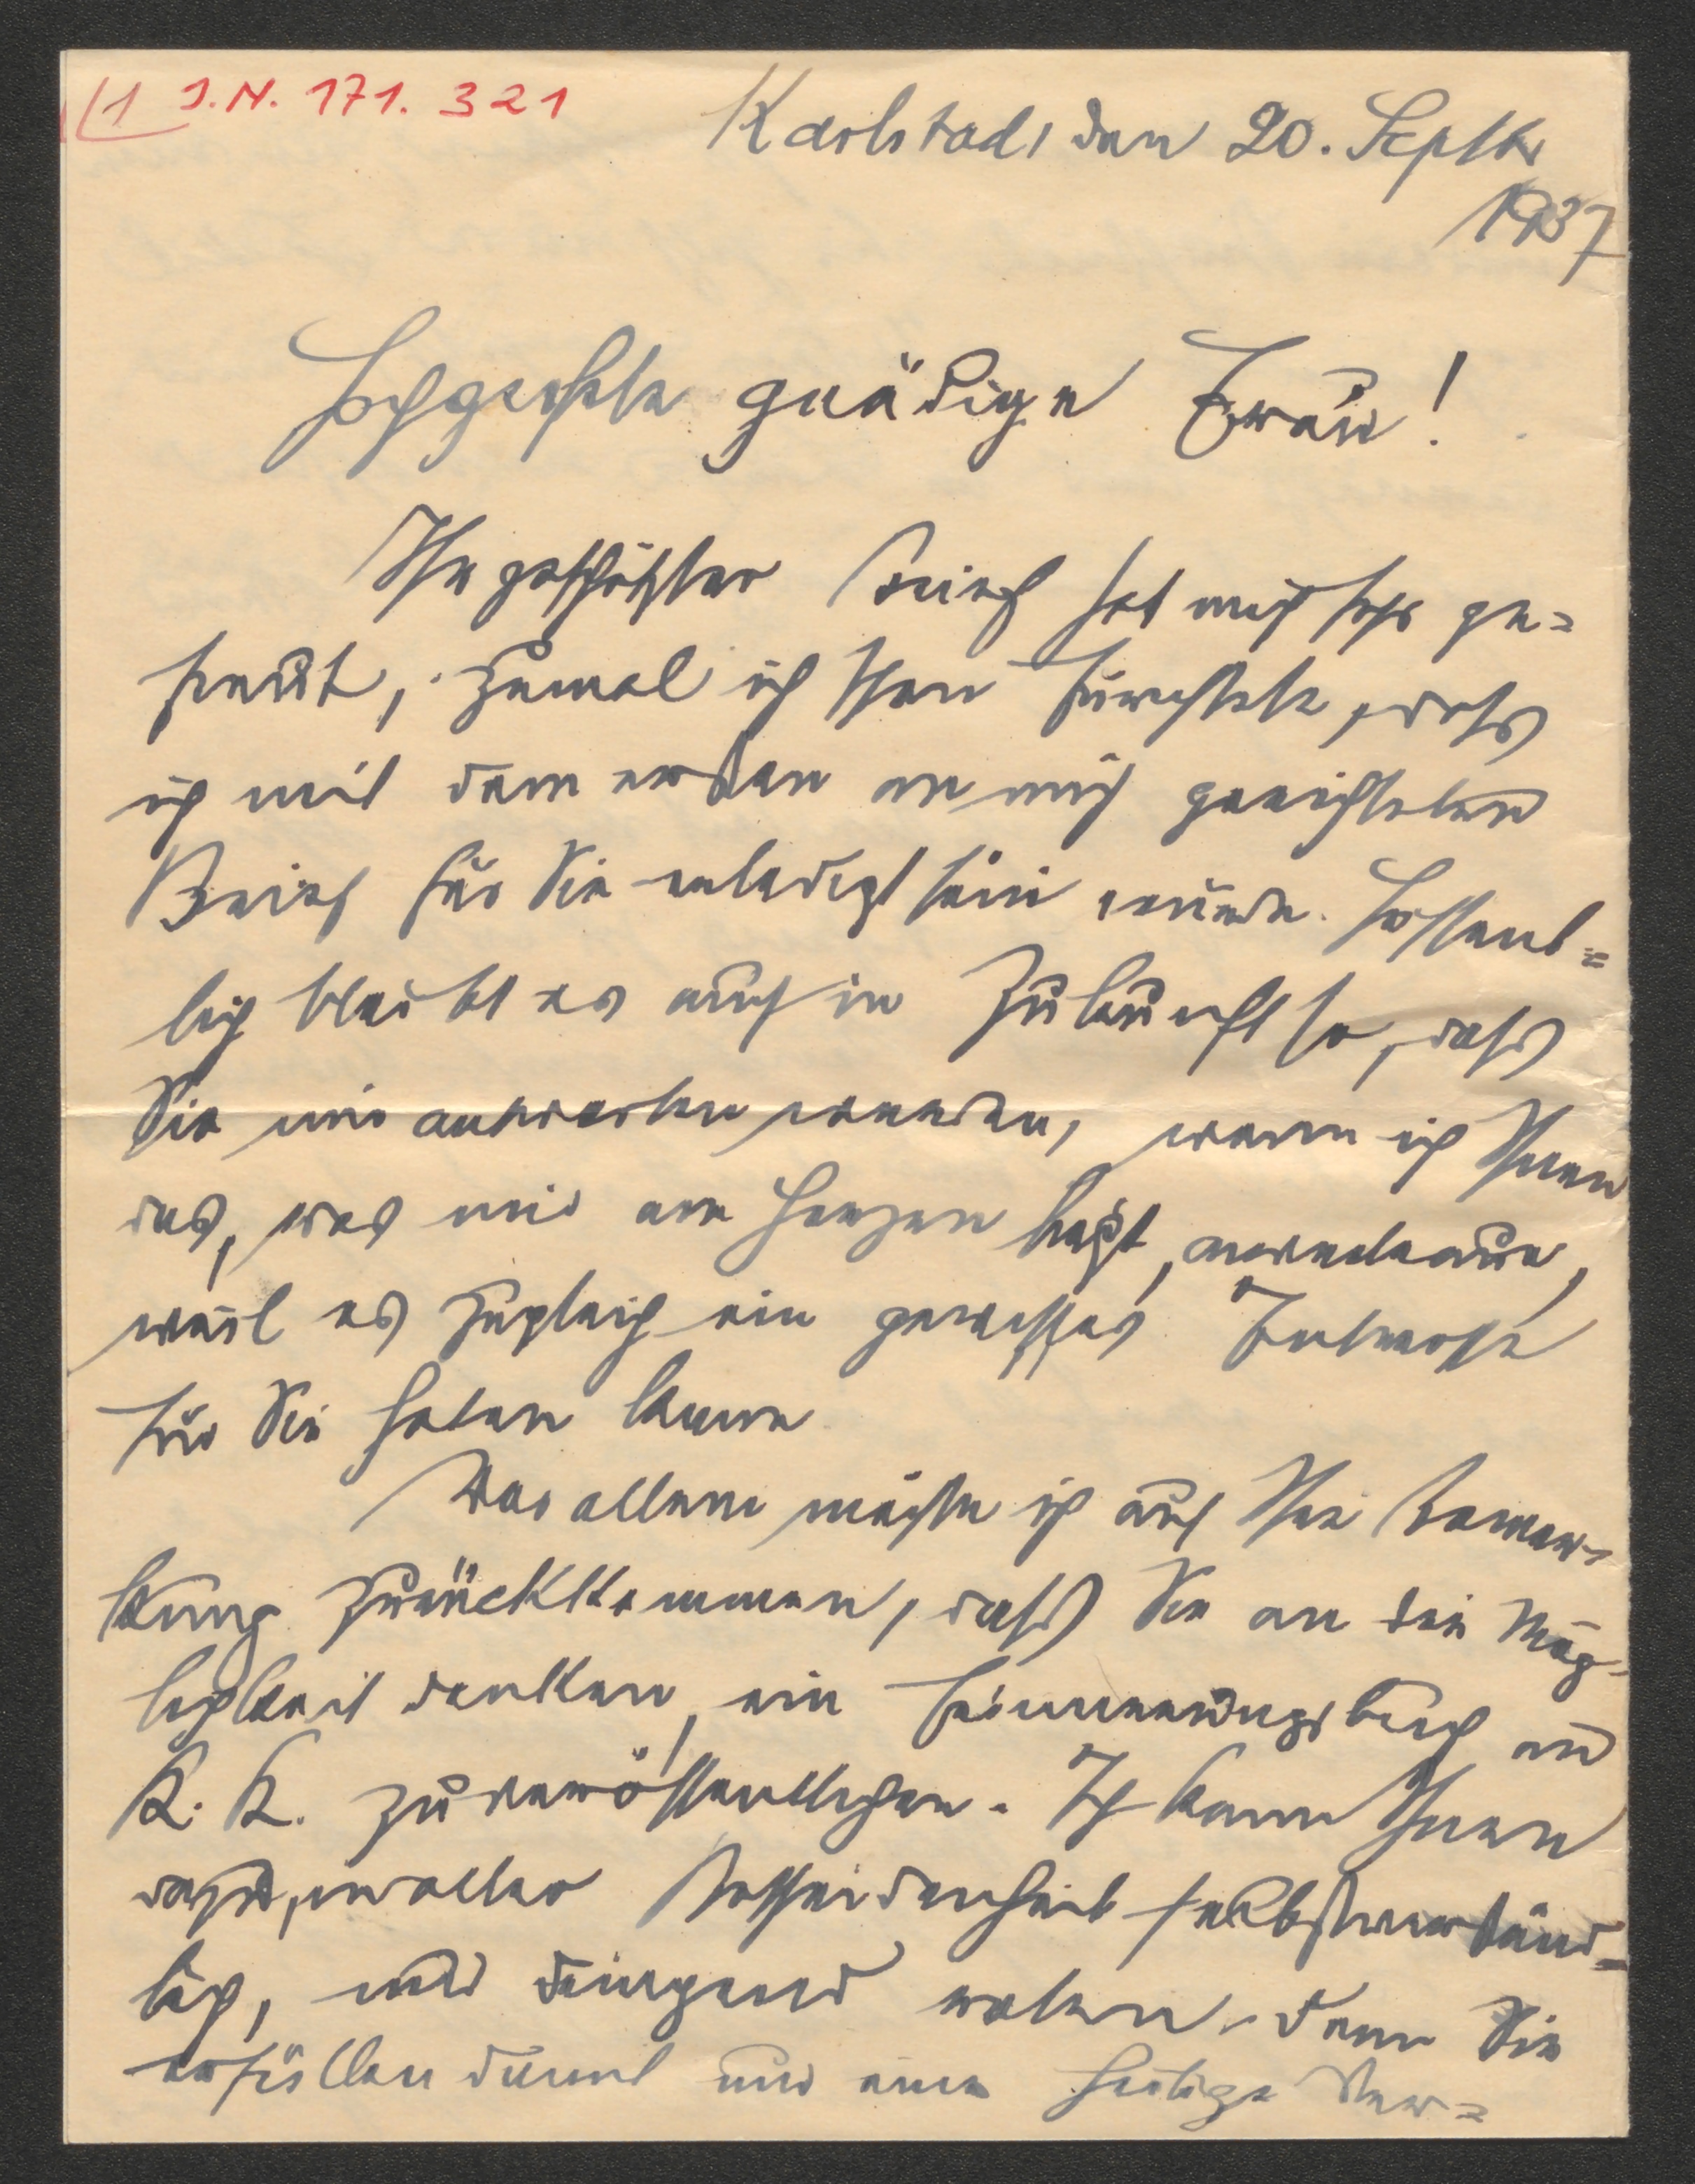 1 J.N. 171.321
Karlstadt, den 20. Septbr
1937
Hochgeehrte gnädige Frau!
Ihr geschätzter Brief hat mich sehr ge=
freut, zumal ich schon fürchtete, dass
ich mit dem ersten an mich gerichteten
Brief für Sie erledigt sein würde. Hoffent=
lich bleibt es auch in Zukunft so, dass
Sie mir antworten werden, wenn ich Ihnen
das, was mir am Herzen liegt, anvertraue,
weil es zugleich ein gewisses Interesse
für Sie haben kann
Vor allem möchte ich auf Ihre Bemer-
kung zurückkommen, dass Sie an die Mög-
lichkeit denken, ein Erinnerungsbuch an
K. K. zu veröffentlichen. Ich kann Ihnen
dazu, in aller Bescheidenheit selbstverständ=
lich, nur dringend raten, denn Sie
erfüllen damit nur eine heilige Ver=